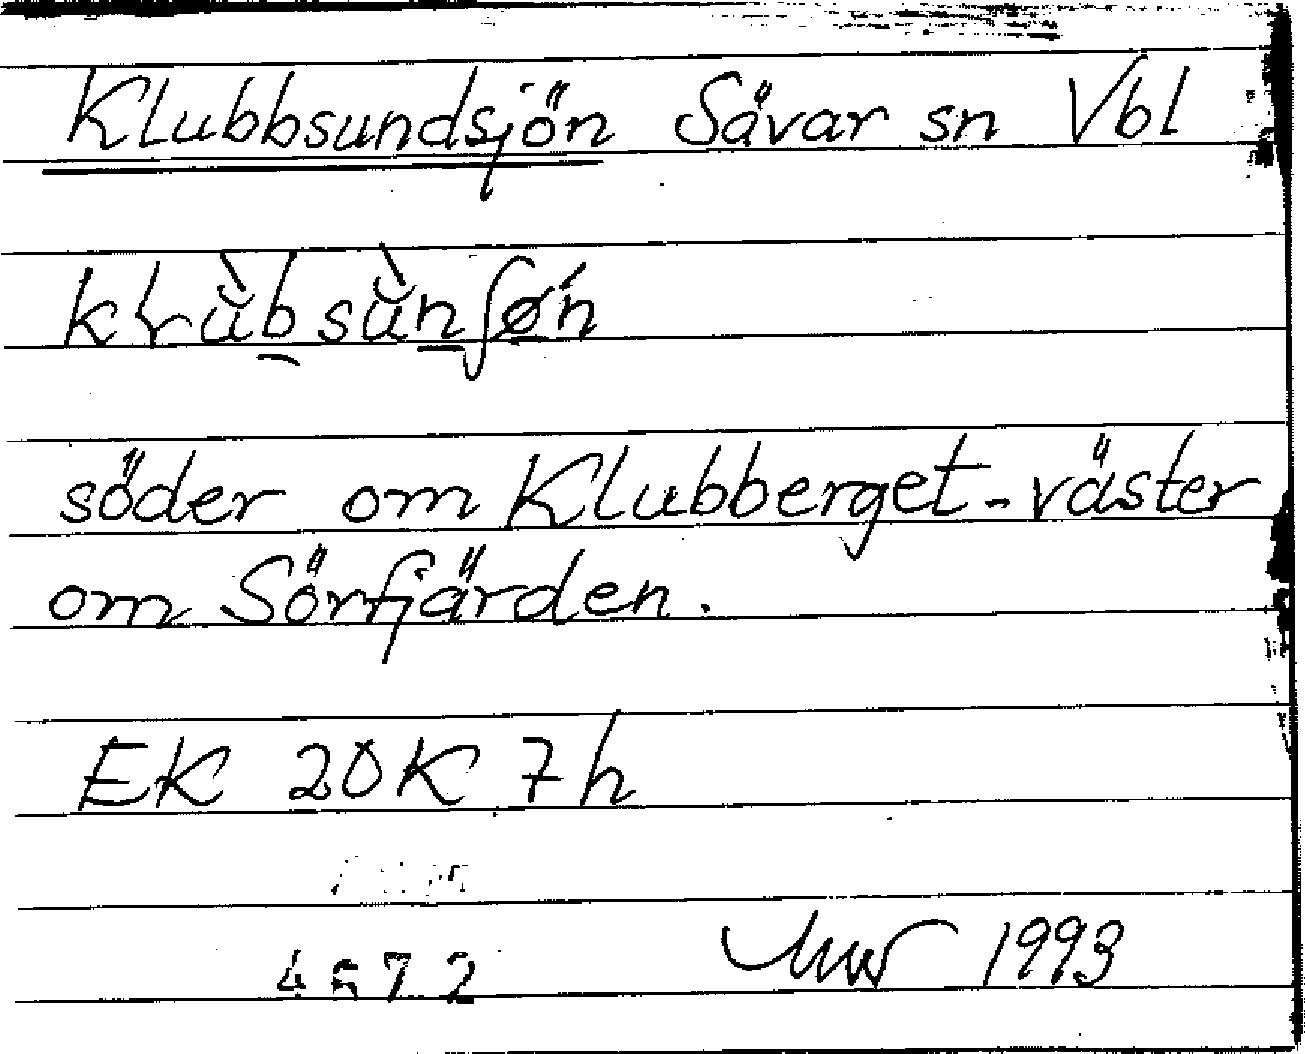 Klubbsundsjön Sävar sn Vbl
söder om Klubberget - väster
om Sörfjärden.
EK 20K 7h
1993